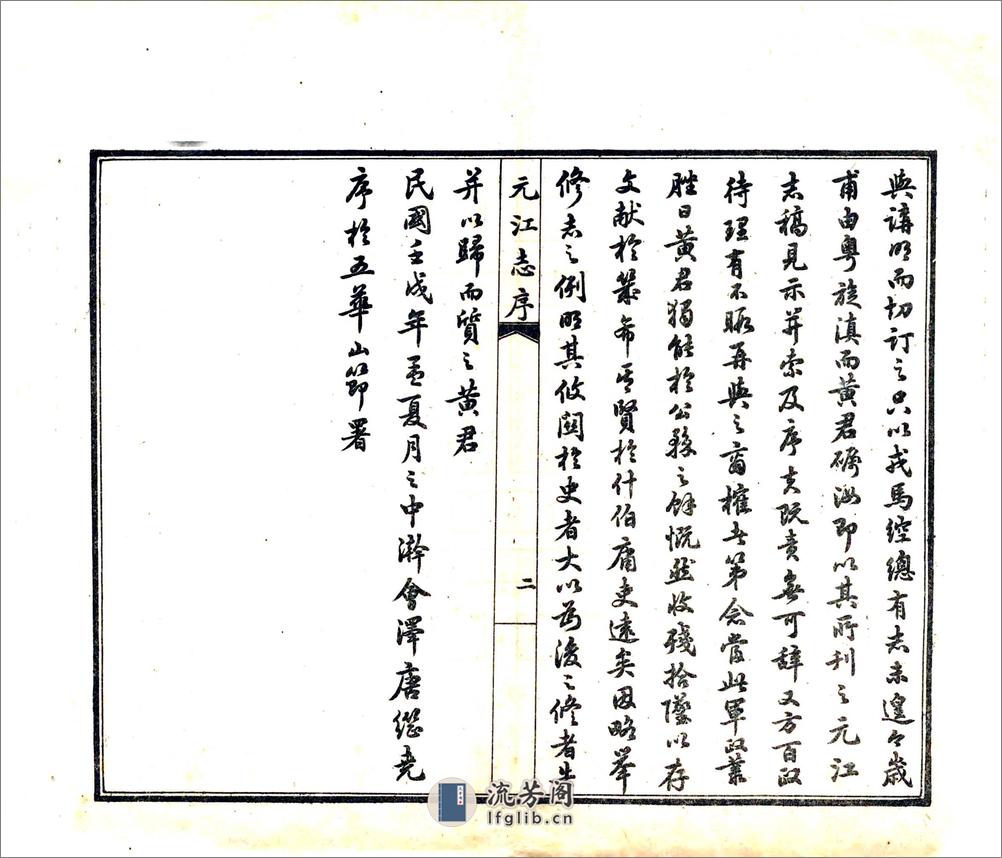 與講明而切訂之只以戎馬倥傯有志未遑今歲
甫由粤旋滇而黄君礪海即以其所刊之元江
志稿見示并索及序言既責無可辭又方百政
待理有不暇再與之商榷者第念當此軍政業
脞日黄君獨能於公務之餘慨然收殘拾墜以存
文献於幾希其賢於什伯庸吏遠矣因略舉
修志之例明其攸關於史者大以為後之修者告
元江志序
二
并以歸而質之黄君
民國壬戌年孟夏月之中澣會澤唐繼堯
序於五華山節署
流芳阁
lfglib.cn